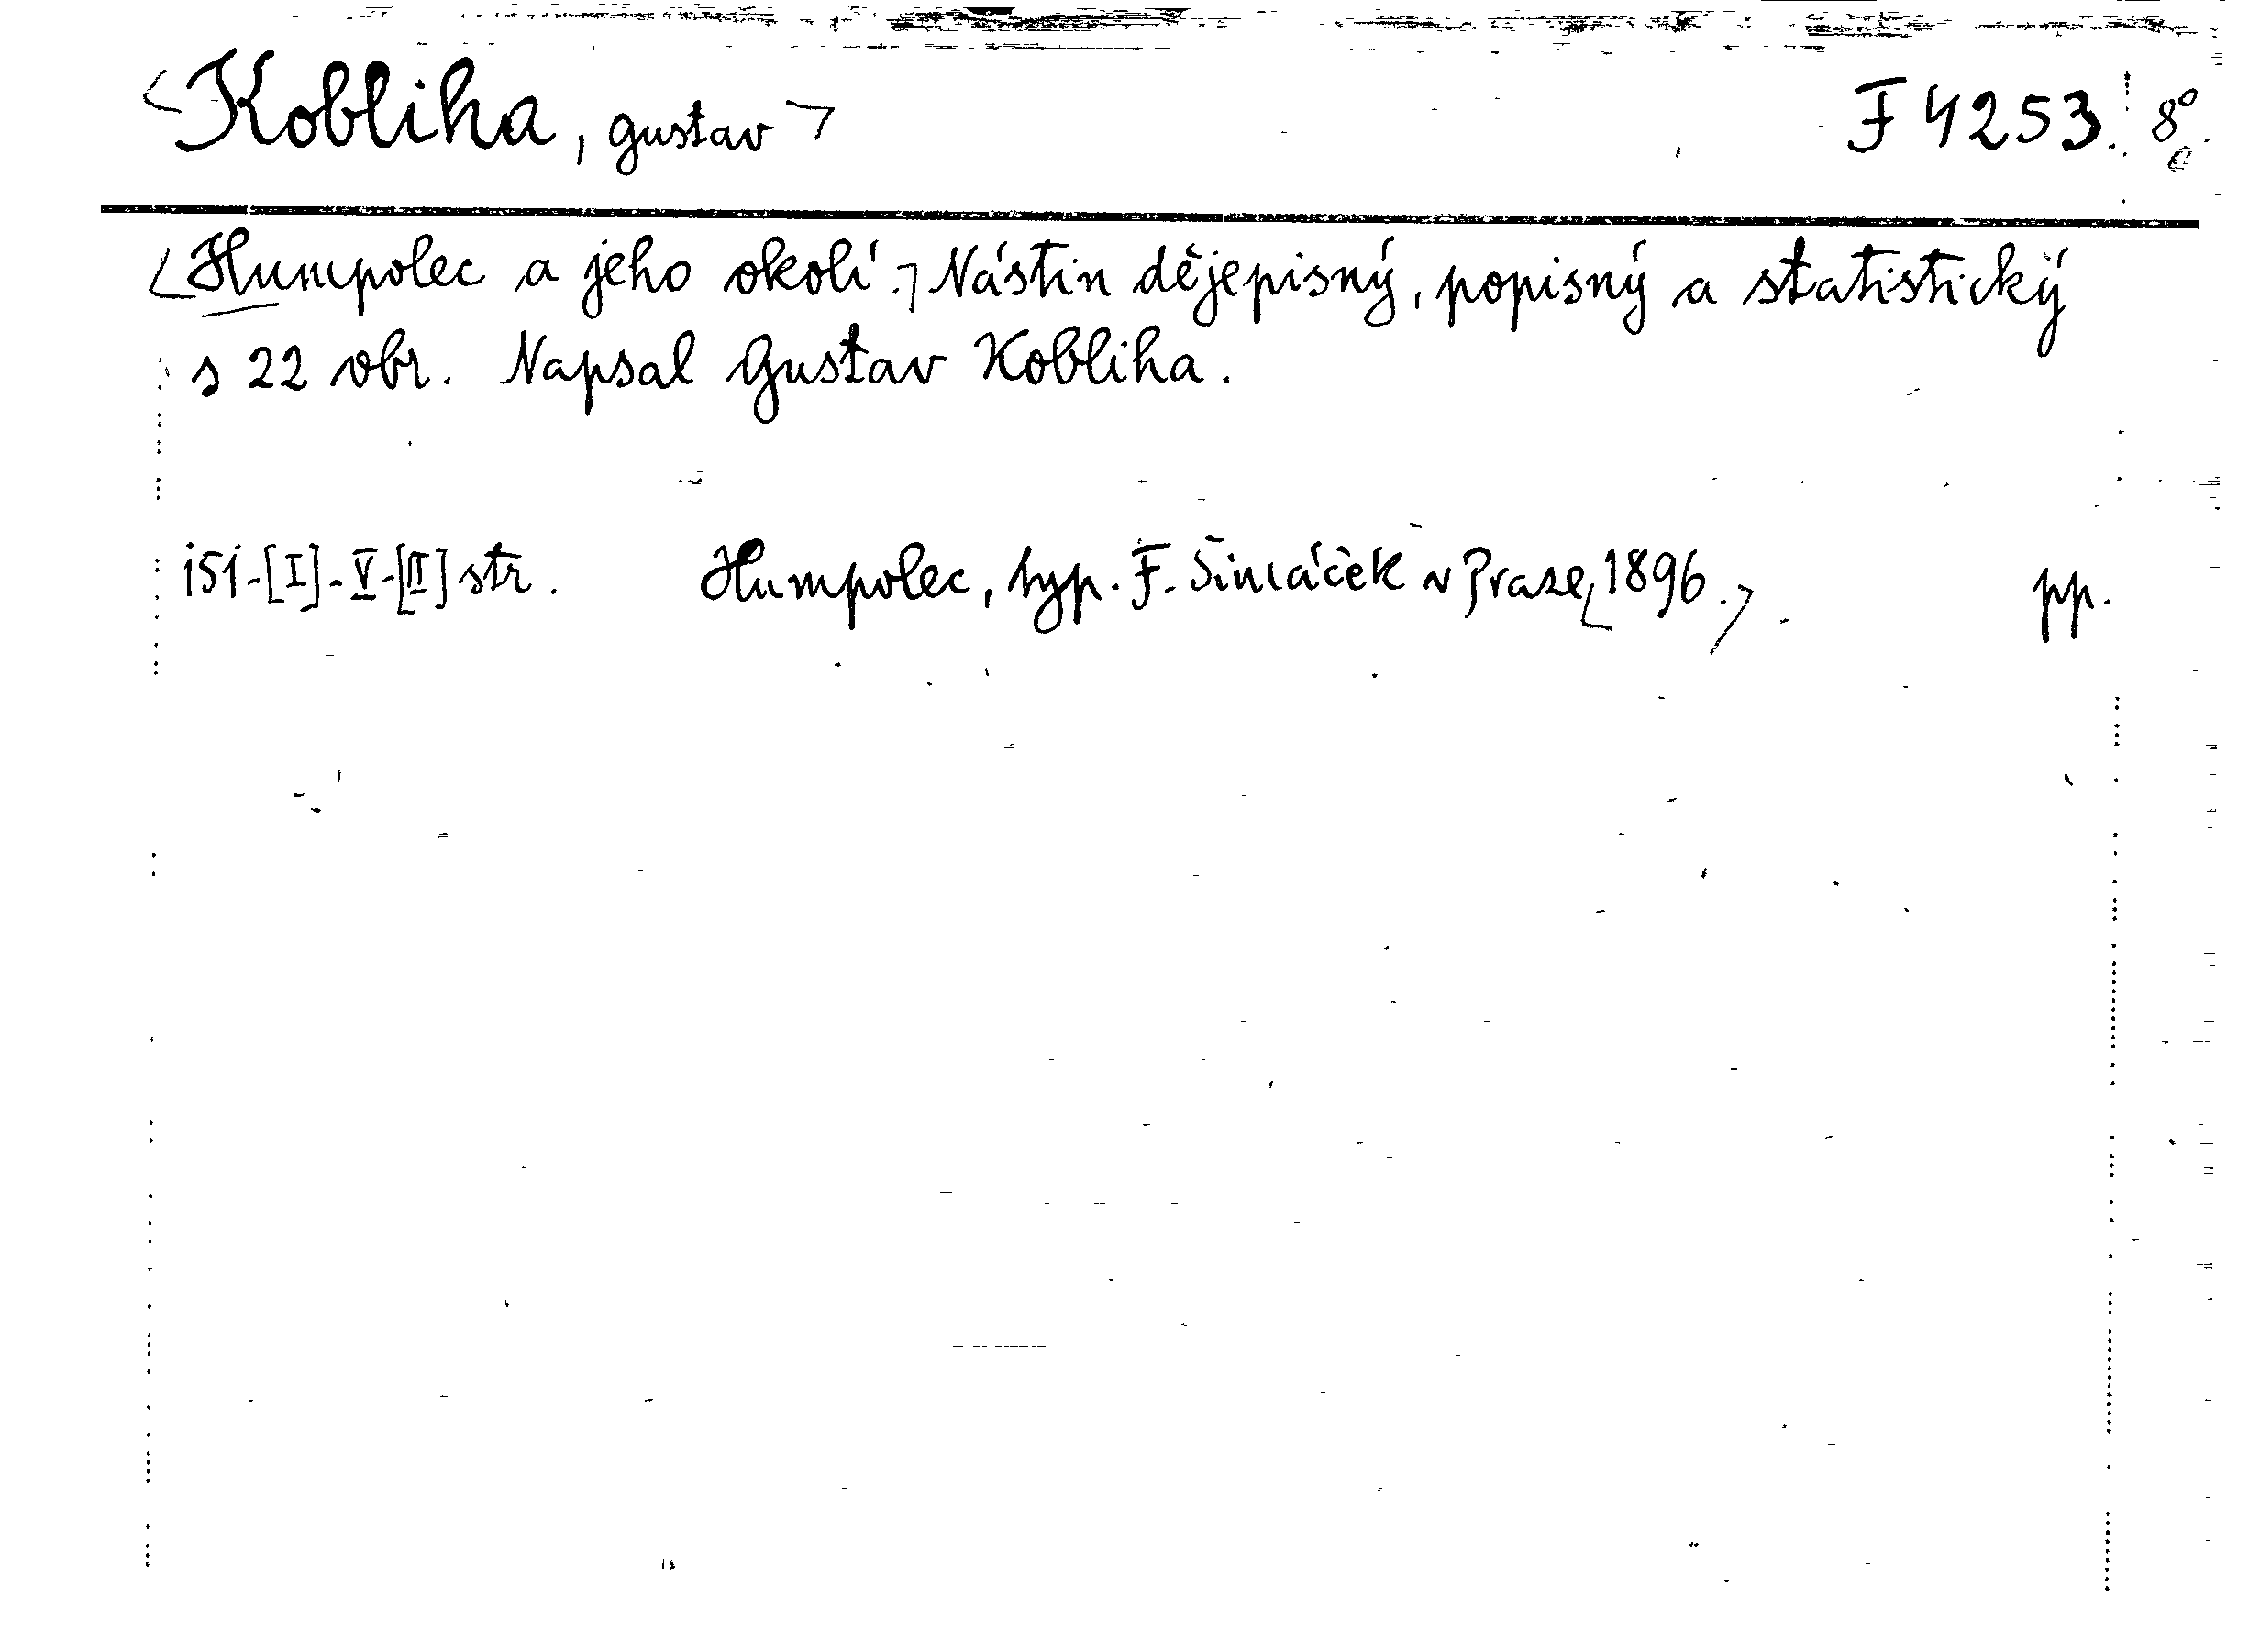 Kobliha, Gustav F 4253. 8°
Humpolec a jeho okolí. Nástin dějepisný, popisný a statistický
s 22 obr. Napsal Gustav Kobliha.
151-[I]-V-[II] str. Humpolec, typ. F. Šimáček v Praze, 1896. pp.